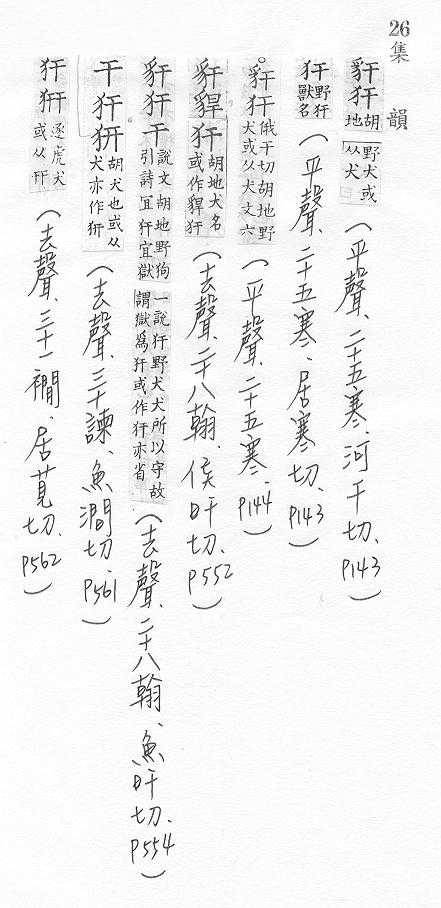 26 集韻
豻犴 胡地野犬或从犬（平聲、二十五寒、河干切、P143）
犴 野犴獸名（平聲、二十五寒、居寒切、P143）
豻犴 俄干切胡地野犬或从犬文六（平聲、二十五寒、P144）
豻貋犴 胡地犬名或作猂犴（去聲、二十八翰、侯旰切、P552）
豻犴干 說文胡地野狗引詩宜犴宜獄一說犴野犬犬所以守故謂獄爲犴或作犴亦省（去聲、二十八翰、魚旰切、P554）
干犴豣 胡犬也或从犬亦作豣（去聲、三十諫、魚澗切、P561）
犴豣 逐虎犬或从幵（去聲、三十一襉、居莧切、P562）